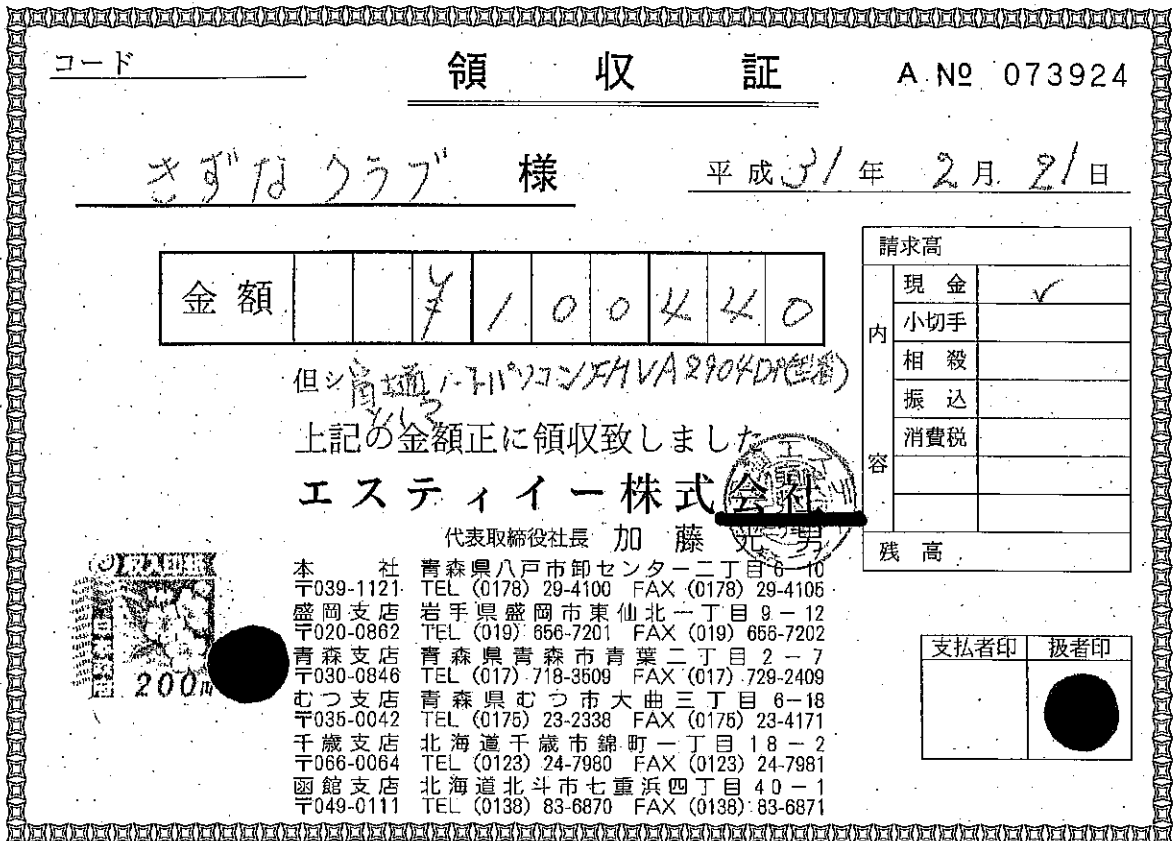 コード
領収証
A No 073924
きずなクラブ 様
平成31年 2月 21日
金額 ¥100440
但シ 富士通ノートパソコンFMVA2904DP(型番)
として
上記の金額正に領収致しました
エスティイー株式会社
代表取締役社長 加藤光男
本社 青森県八戸市卸センター二丁目6-10
〒039-1121 TEL (0178) 29-4100 FAX (0178) 29-4105
盛岡支店 岩手県盛岡市東仙北一丁目9-12
〒020-0862 TEL (019) 656-7201 FAX (019) 656-7202
青森支店 青森県青森市青葉二丁目2-7
〒030-0846 TEL (017) 718-3509 FAX (017) 729-2409
むつ支店 青森県むつ市大曲三丁目6-18
〒035-0042 TEL (0175) 23-2338 FAX (0175) 23-4171
千歳支店 北海道千歳市錦町一丁目18-2
〒066-0064 TEL (0123) 24-7980 FAX (0123) 24-7981
函館支店 北海道北斗市七重浜四丁目40-1
〒049-0111 TEL (0138) 83-6870 FAX (0138) 83-6871
請求高
内容
現金 ✓
小切手
相殺
振込
消費税
残高
収入印紙
200円
支払者印 扱者印